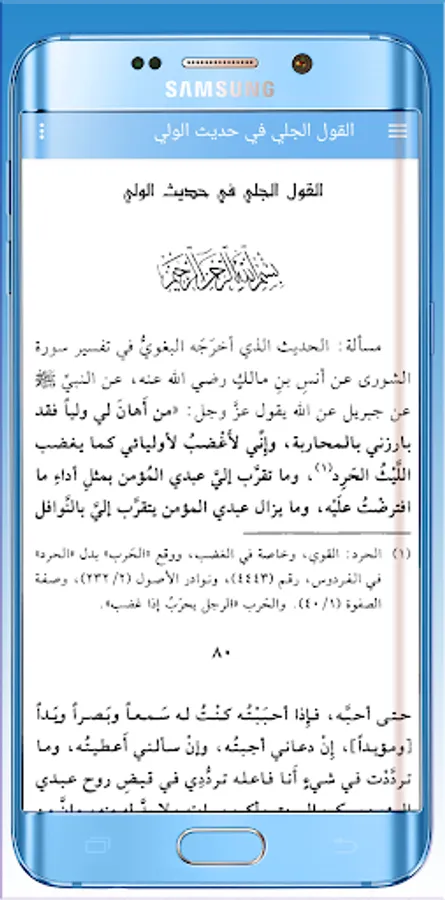 SAMSUNG
القول الجلي في حديث الولي
القول الجلي في حديث الولي
بسم الله الرحمن الرحيم
مسألة: الحديث الذي أخرَجَه البغويُّ في تفسير سورة
الشورى عن أنسِ بنِ مالكٍ رضي الله عنه، عن النبيِّ ﷺ
عن جبريل عن الله يقول عزَّ وجل: «من أهانَ لي ولياً فقد
بارزني بالمحاربة، وإنِّي لأغْضبُ لأوليائي كما يغضب
اللَّيْثُ الحَرِد(١)، وما تقرَّب إليَّ عبدي المُؤمن بمثلِ أداءِ ما
افترضْتُ علَيْه، وما يزال عبدي المؤمن يتقرَّب إليَّ بالنَّوافل
(١) الحرد: القوي، وخاصة في الغضب، ووقع «الحَرب» بدل «الحرد»
في الفردوس، رقم (٤٤٤٣)، ونوادر الأصول (٢/ ٢٣٢)، وصفة
الصفوة (١/ ٤٠). والحَرب «الرجل يحرَبُ إذا غضب».
٨٠
حتى أحبَّه، فَإِذا أحبَبْتُه كنْتُ له سَمعاً وبَصراً ويَداً
[ومؤيداً]، إنْ دعاني أجبتُه، وإنْ سألني أعطيتُه، وما
تردَّدْت في شيءٍ أنا فاعله تردُّدِي في قبضِ روح عبدي